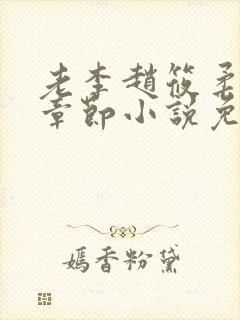 老李趙筱柔
章節小說免
嫣香粉黛